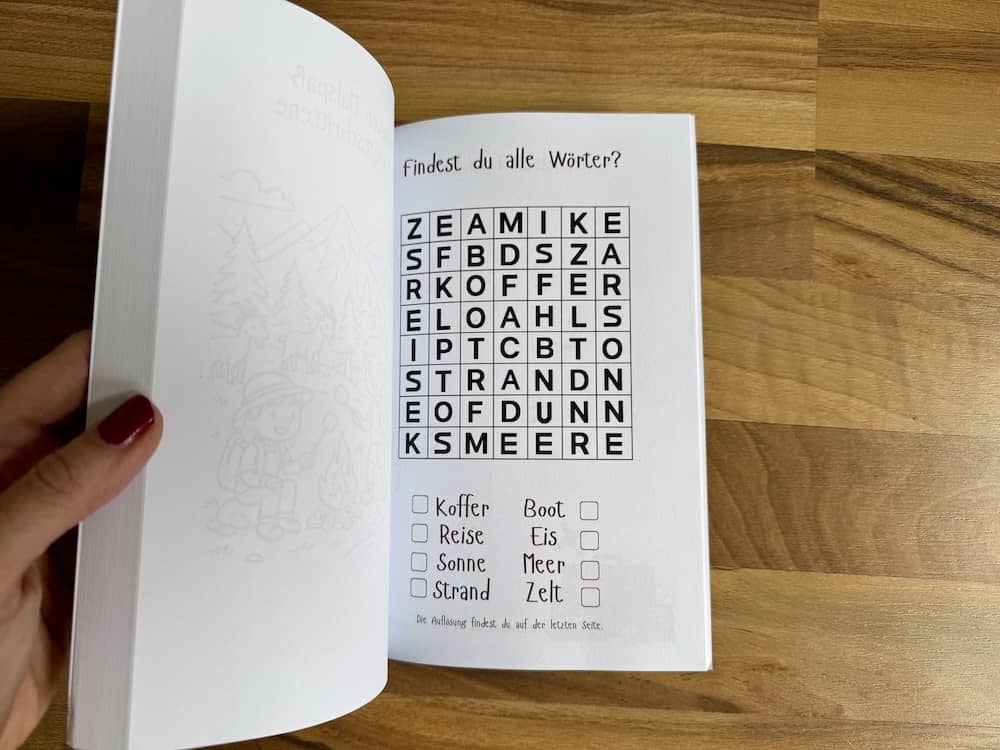 Findest du alle Wörter?
Z E A M I K E
S F B D S Z A
R K O F F E R
E L O A H L S
I P T C B T O
S T R A N D N
E O F D U N N
K S M E E R E
Koffer Boot
Reise Eis
Sonne Meer
Strand Zelt
Die Auflösung findest du auf der letzten Seite.